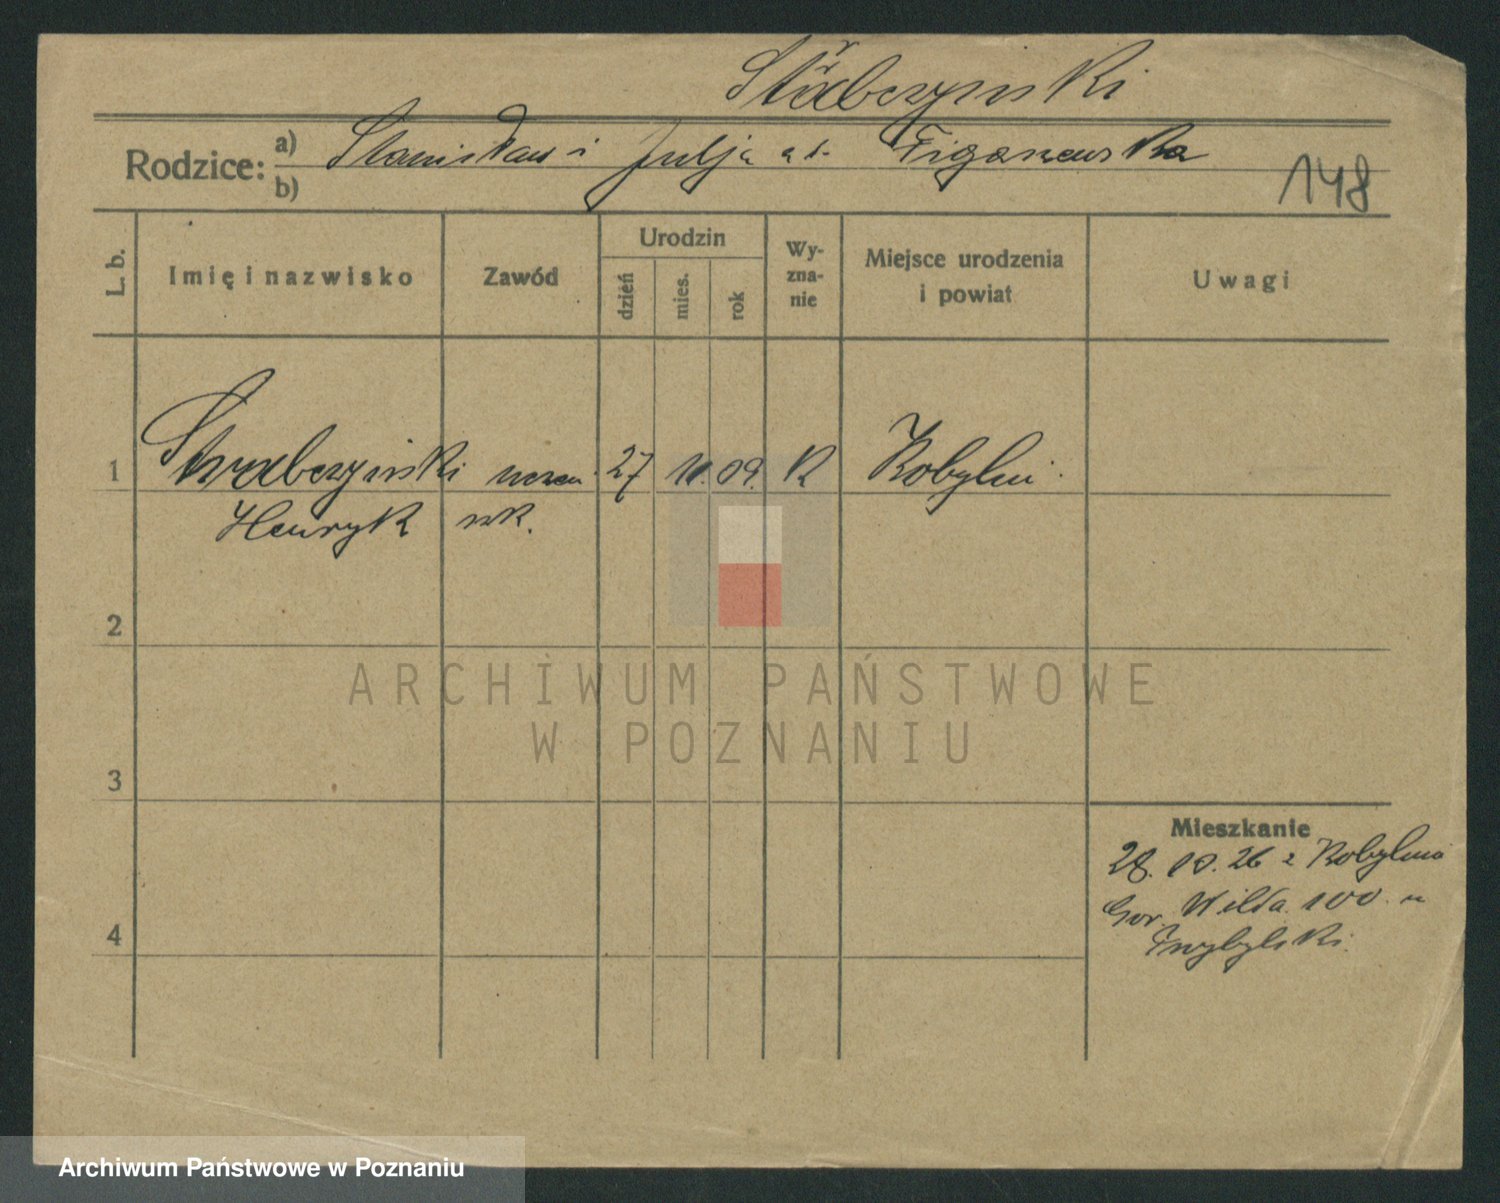 Strabczynski
Rodzice: a) Stanisław i Julja
b)
148
L. b.
Imię i nazwisko
Zawód
Urodzin
dzień
mies.
rok
Wy-
zna-
nie
Miejsce urodzenia
i powiat
Uwagi
1
Strabczyński uczeń 27 10. 09. K Kobylin
Henryk
2
ARCHIWUM PAŃSTWOWE
W POZNANIU
3
Mieszkanie
28. 10. 26 z Kobylina
Gor. Wilda 100 u
4
Archiwum Państwowe w Poznaniu